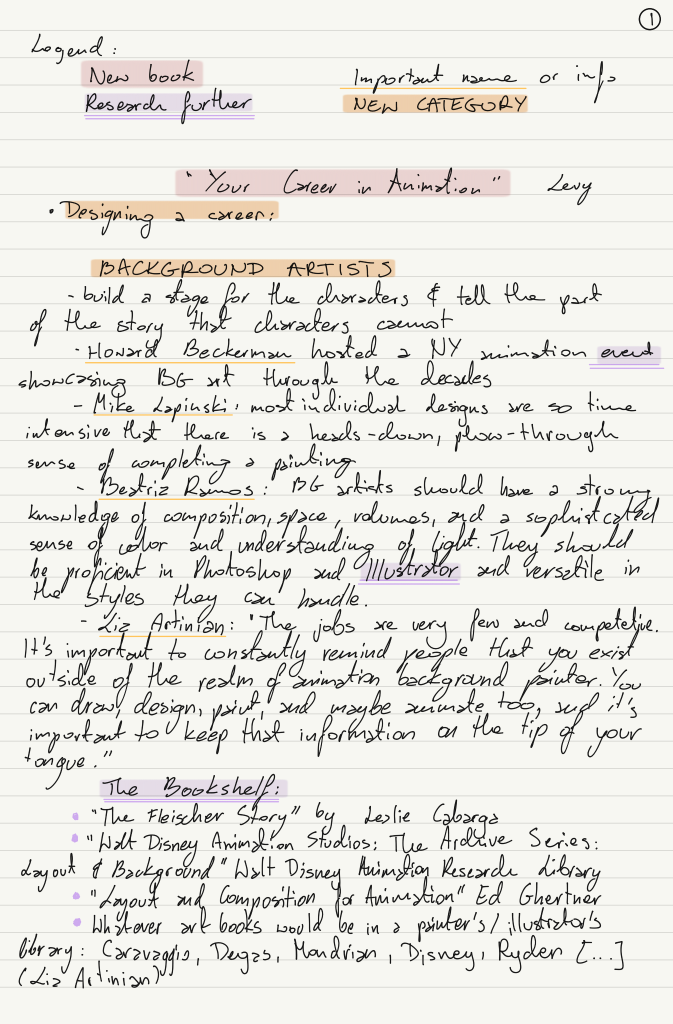 1
Legend:
New book
Important name or info
Research further
NEW CATEGORY
"Your Career in Animation" Levy
• Designing a career:
BACKGROUND ARTISTS
- build a stage for the characters & tell the part
of the story that characters cannot
- Howard Beckerman hosted a NY animation event
showcasing BG art through the decades
- Mike Lapinski: most individual designs are so time
intensive that there is a heads-down, plow-through
sense of completing a painting
- Beatriz Ramos: BG artists should have a strong
knowledge of composition, space, volumes, and a sophisticated
sense of color and understanding of light. They should
be proficient in Photoshop and Illustrator and versatile in
the styles they can handle.
- Liz Artinian: "The jobs are very few and competetive.
It's important to constantly remind people that you exist
outside of the realm of animation background painter. You
can draw, design, paint, and maybe animate too, and it's
important to keep that information on the tip of your
tongue."
The Bookshelf:
• "The Fleischer Story" by Leslie Cabarga
• "Walt Disney Animation Studios: The Archive Series:
Layout & Background" Walt Disney Animation Research Library
• "Layout and Composition for Animation" Ed Ghertner
• Whatever art books would be in a painter's/illustrator's
library: Caravaggio, Degas, Mondrian, Disney, Ryden [...]
(Liz Artinian)